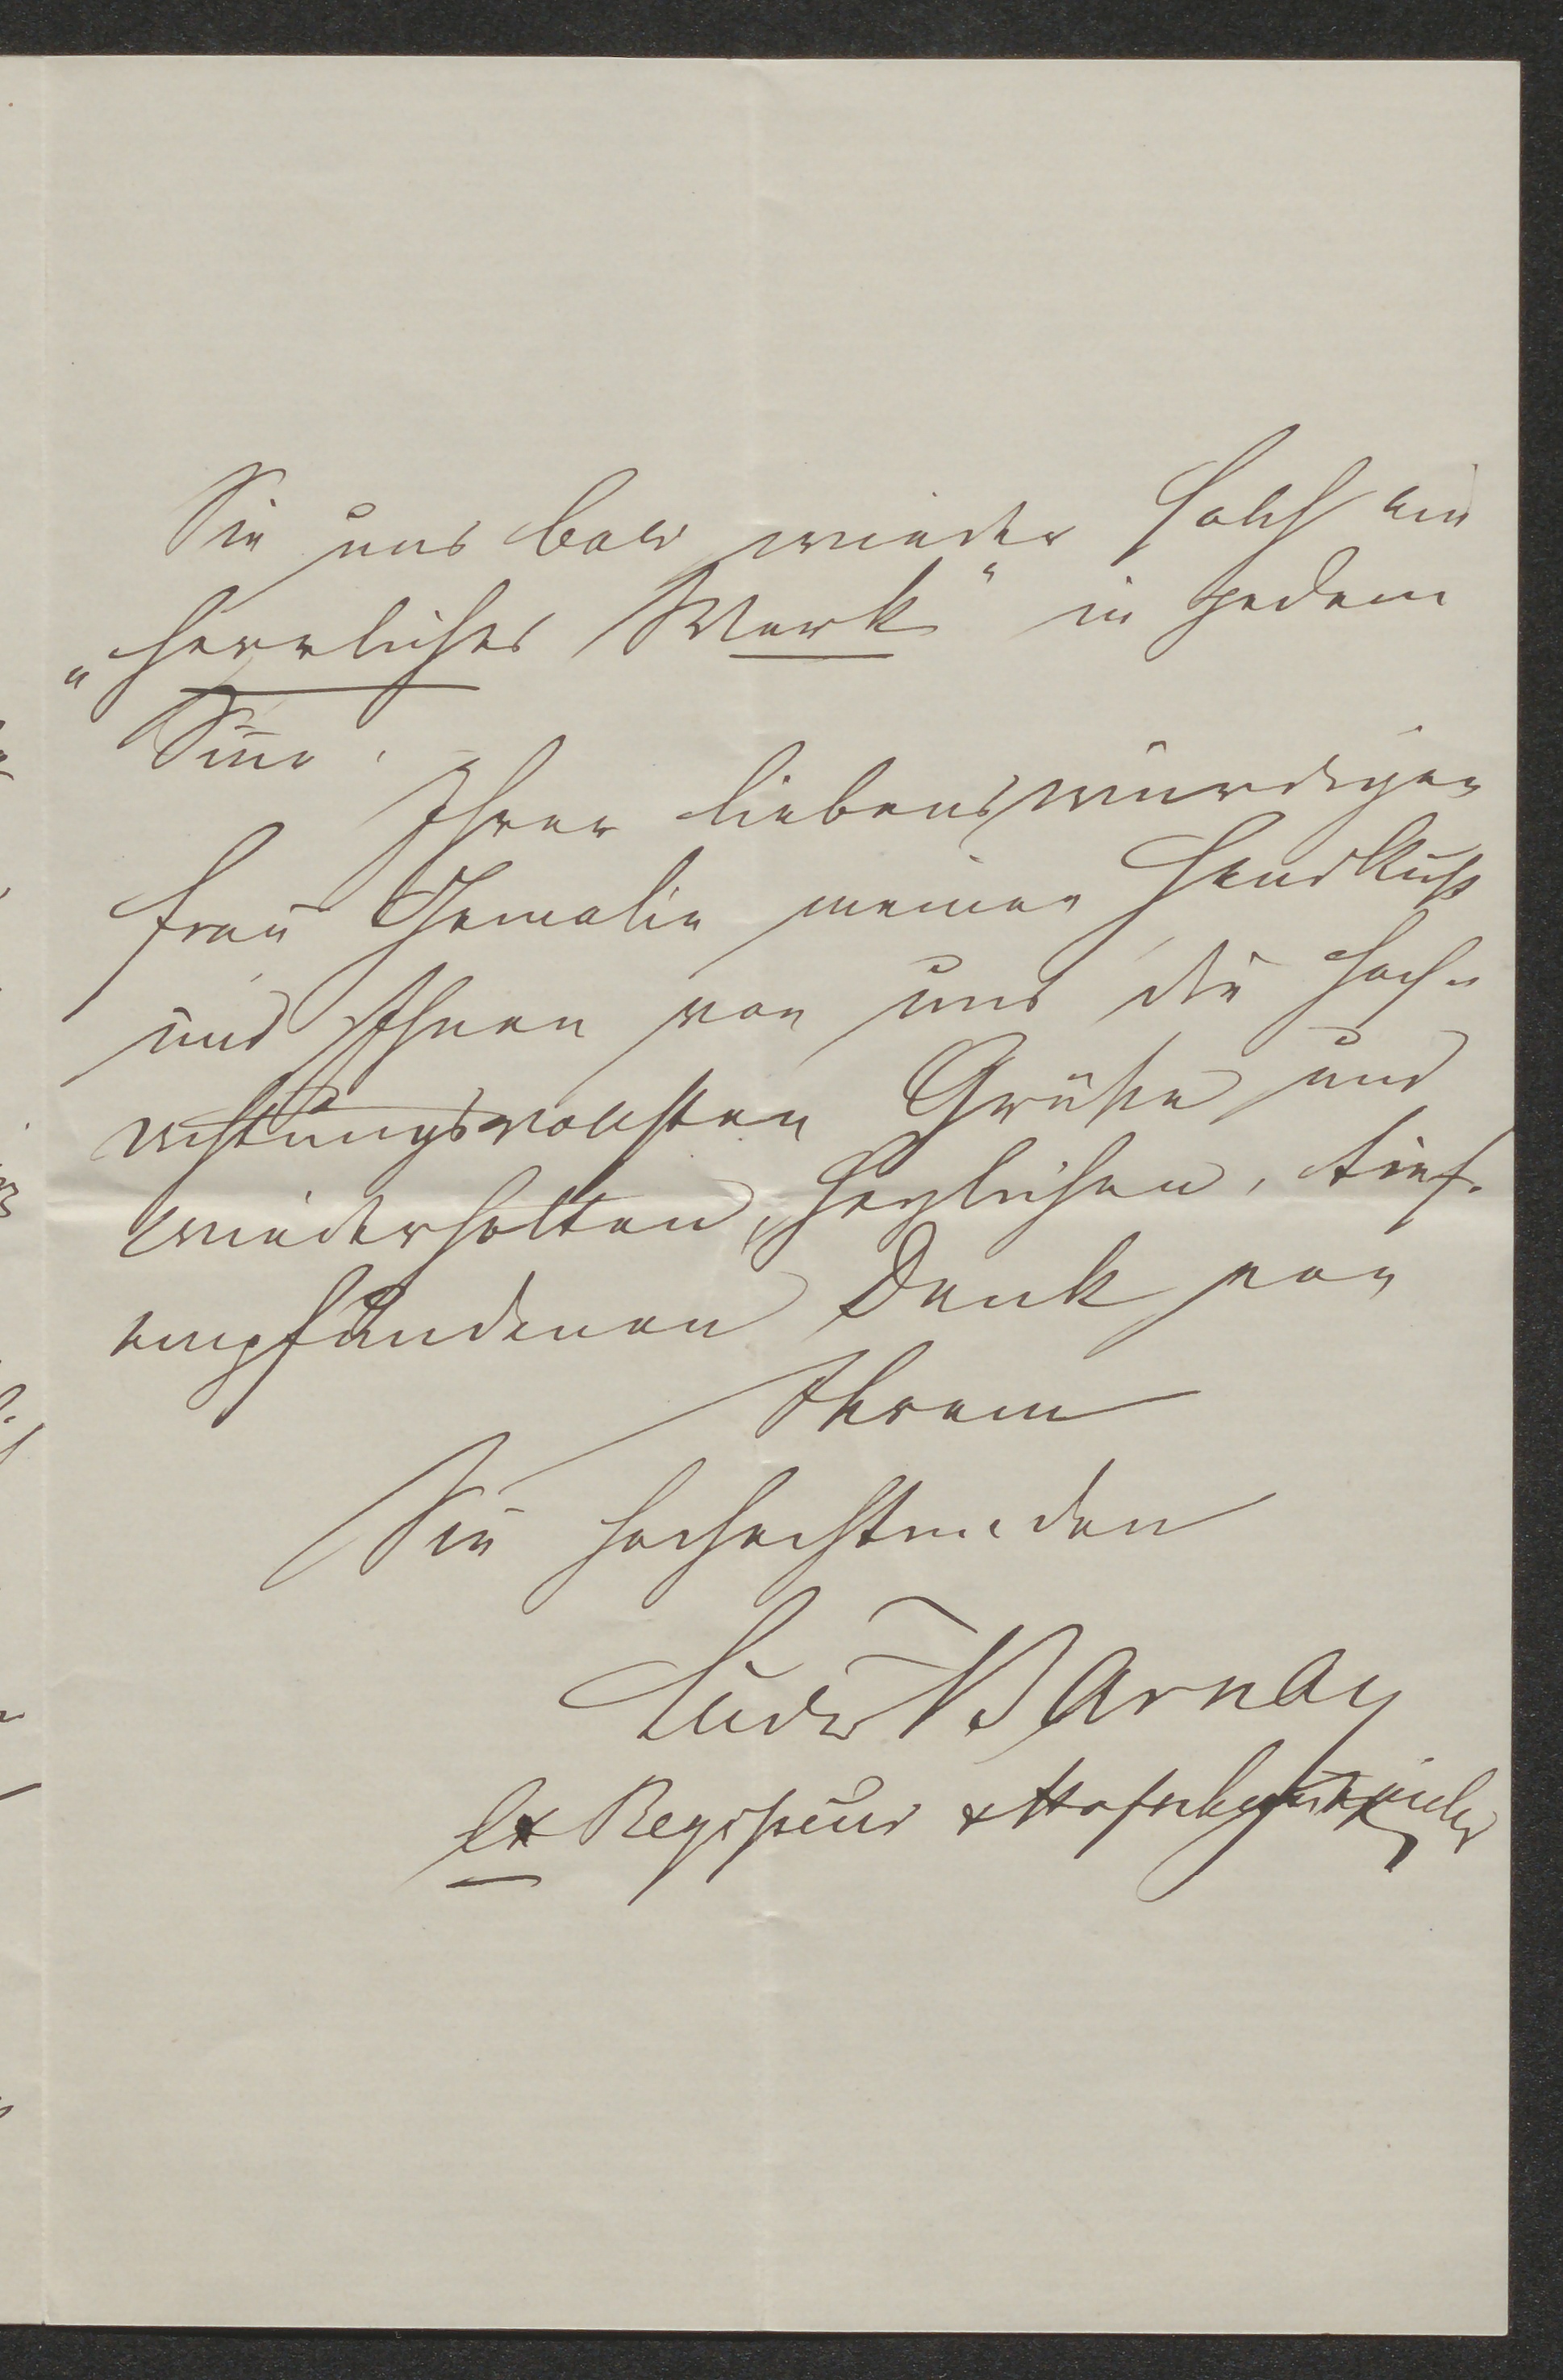 Sie uns bald wieder solch ein
„herrliches Werk“ in jedem
Sinne.
Ihrer liebenswürdigen
Frau Gemalin meinen Handkuß
und Ihnen von uns die hoch-
achtungsvollsten Grüße und
wiederholten, herzlichen, tief-
empfundenen Dank von
Ihrem
Sie hochachtenden
Ludw Barnay
Ex Regisseur & Hofschauspieler